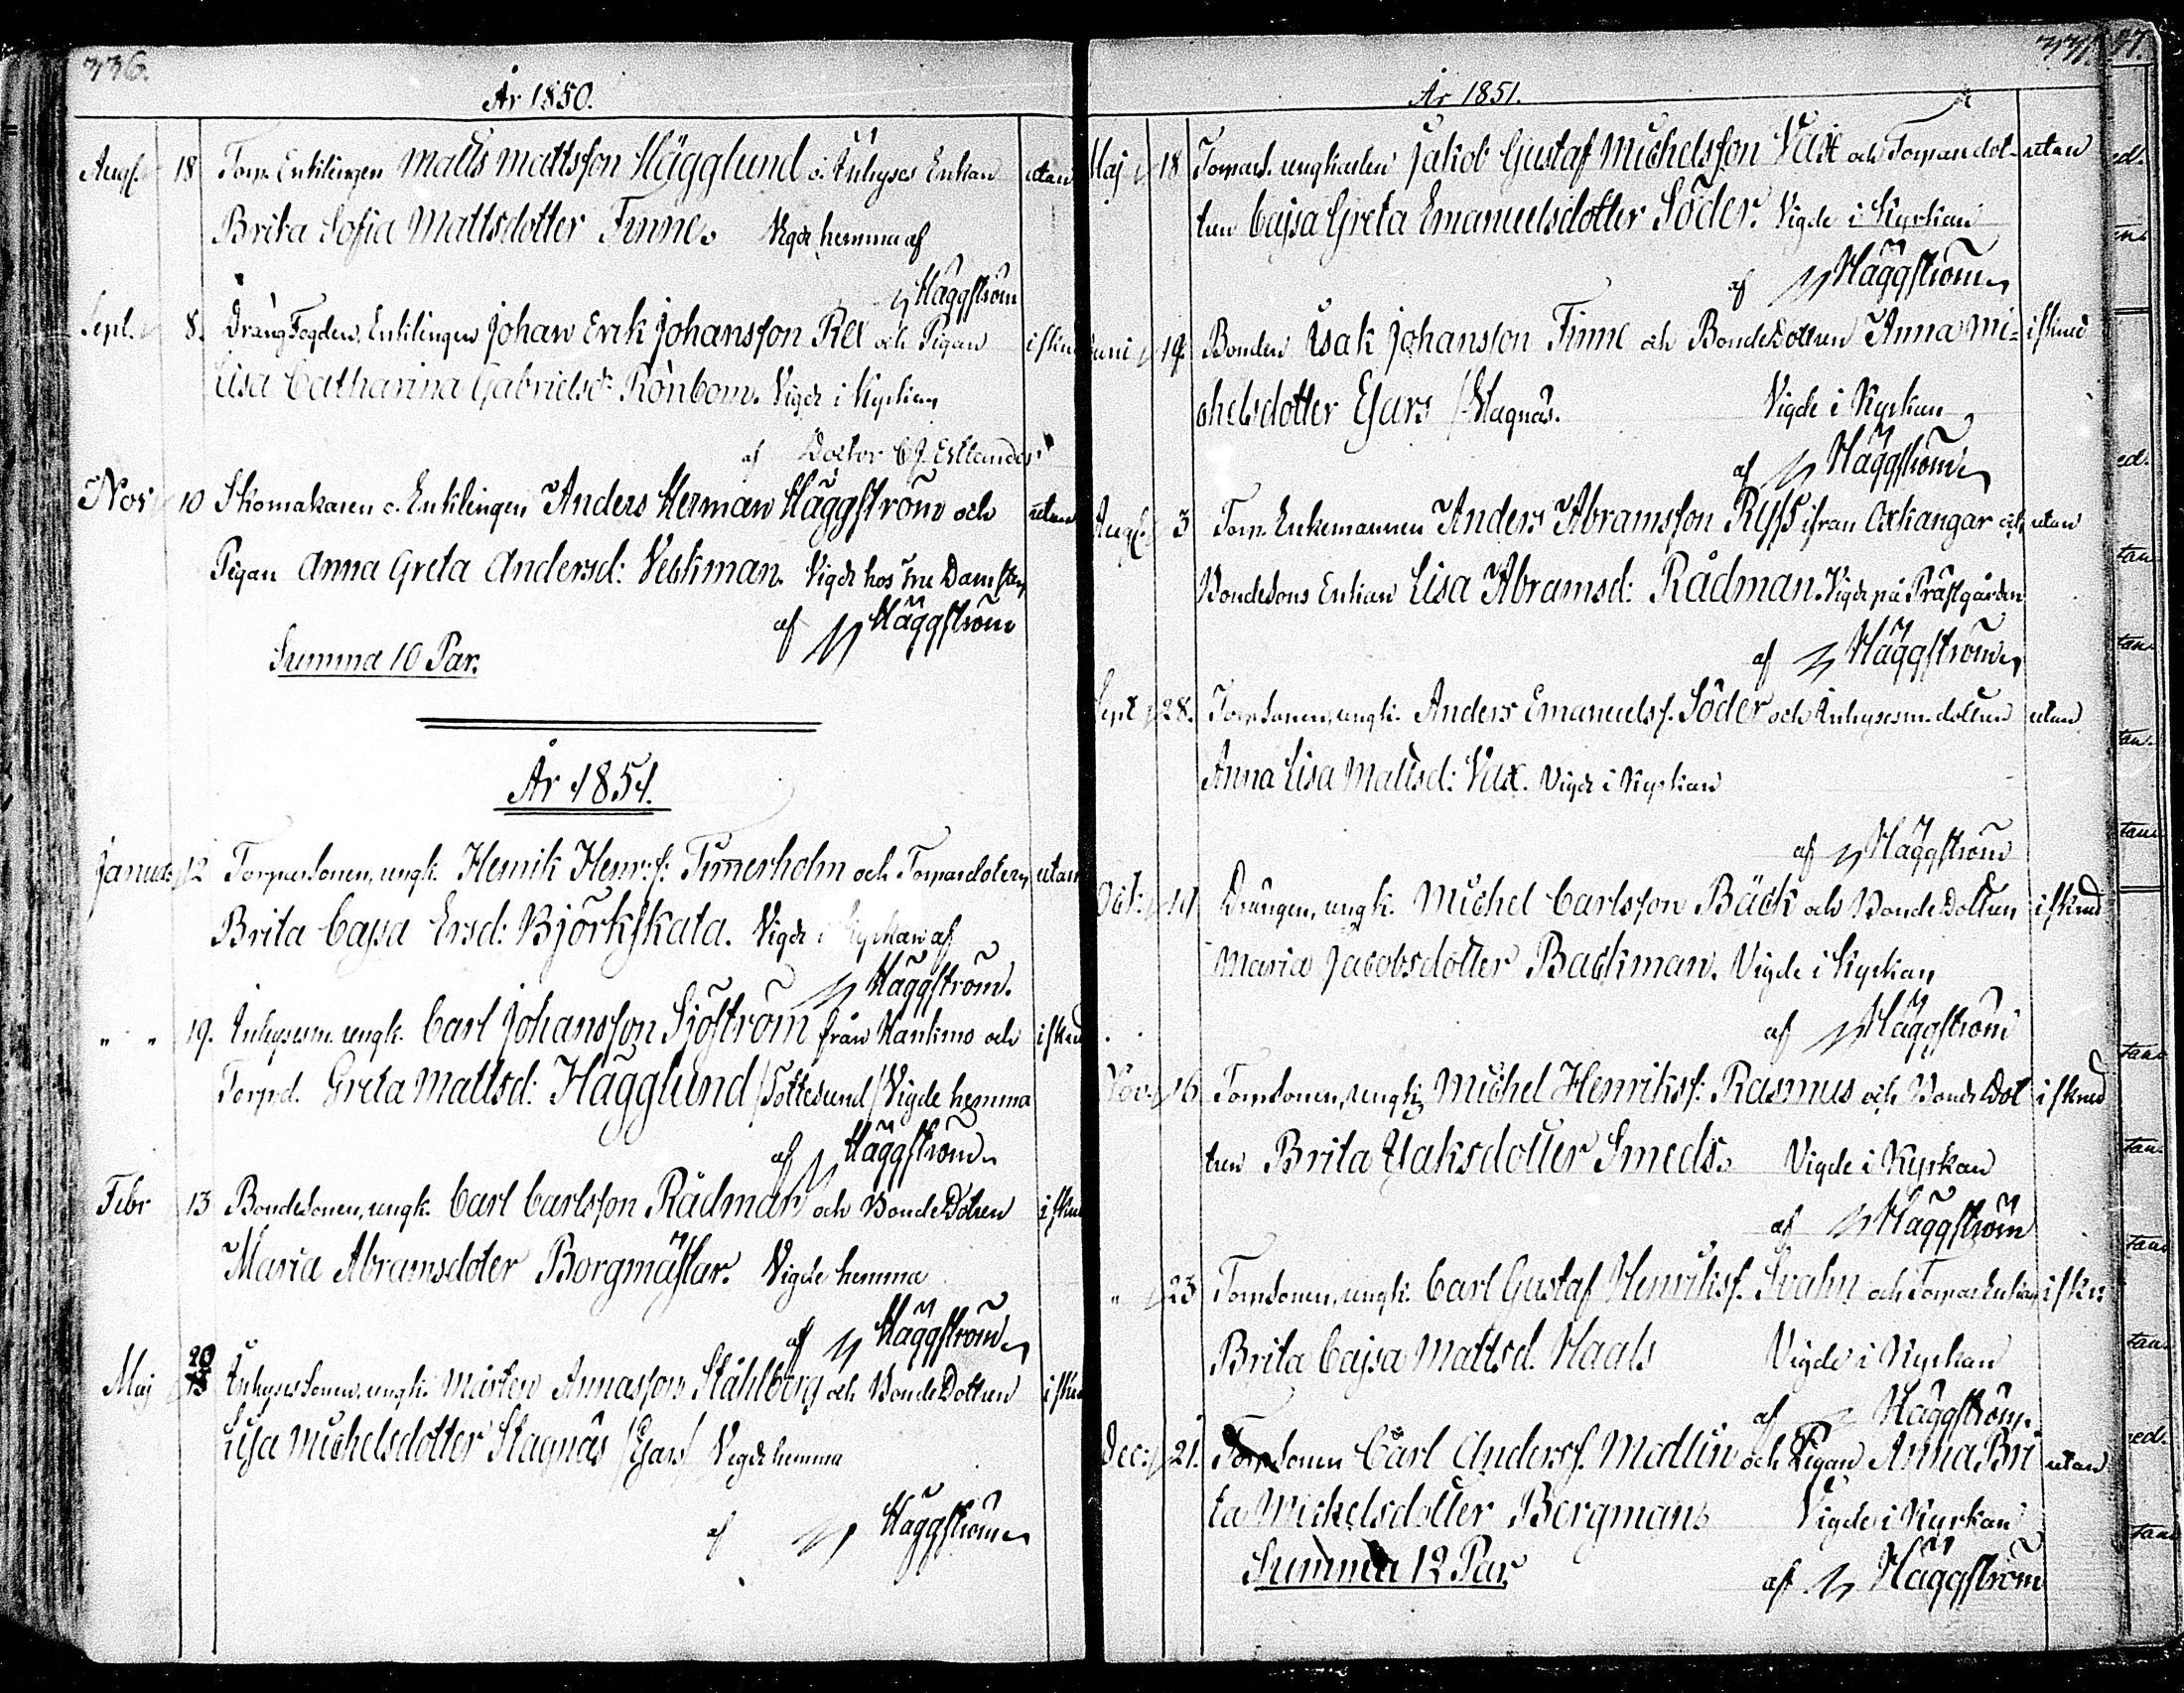 336.
År 1850.
Aug. 18 Torp. Enklingen Matts Mattsson Hägglund o. Inhyses Enkan utan
Brita Sofia Mattsdotter Finne. Vigde hemma af
Häggström
Sept. 8. Dräng Fogden, Enklingen Johan Erik Johansson Rex och Pigan i skin
Lisa Catharina Gabrielsd: Rönbom. Vigde i Kyrkan
af Doctor C. J. Estlander
Nov 10 Skomakaren o. Enklingen Anders Herman Häggström och utan
Pigan Anna Greta Andersd: Veckman. Vigde hos Damsten
af Häggström
Summa 10 Par.
År 1851.
Januar. 12 Torparsonen, ungk. Henrik Henr: s: Timerholm och Torparedotern utan
Brita Cajsa Ersd: Björkskata. Vigde i Kyrkan af
Häggström.
" " 19. Inhysesm. ungk. Carl Johansson Sjöström från Kankmo och i skin
Torp.d. Greta Mattsd: Hägglund / Tottesund / Vigde hemma
af Häggström
Febr 13 Bondesonen, ungk. Carl Carlsson Rådman och BondeDotren i skin
Maria Abramsdoter Borgmästar. Vigde hemma
af Häggström
20
Maj 13 Inhyses Sonen, ungk. Mårten Annasson Ståhlberg och BondeDottren i skin
Lisa Michelsdotter Stagnäs / Esars / Vigde hemma
af Häggström
337.
År 1851.
Maj 18 Torpares. ungkarlen Jakob Gustaf Michelsson Vax och Torparedot- utan
tren Cajsa Greta Emanuelsdotter Söder. Vigde i Kyrkan
af Häggström
Juni 19. Bonden Isak Johansson Finne och BondeDottren Anna Mi- i skind
chelsdotter Esars / Stagnäs. Vigde i Kyrkan
af Häggström
Aug. 3 Torp. Enkemannen Anders Abramsson Ryss ifrån Oxkangar och utan
Bondesons Enkan Lisa Abramsd: Rådman. Vigde på Prästgården
af Häggström
Sept 28. Torpsonen, ungk. Anders Emanuels s. Söder och Inhysesm. dottren utan
Anna Lisa Mattsd: Vax. Vigde i Kyrkan
af Häggström
Oct: Drängen, ungk. Michel Carlsson Bäck och BondeDottren i skind
Maria Jacobsdotter Backman. Vigde i Kyrkan
af Häggström
Nov. 16 Torpsonen, ungk. Michel Henriks s: Rasmus och BondeDot i skind
tren Brita Isaksdotter Smeds. Vigde i Kyrkan
af Häggström
" 23 Torpsonen, ungk. Carl Gustaf Henriks s. Svahn och Torpar Enkan i skin
Brita Cajsa Mattsd. Haals Vigde i Kyrkan
af Häggström.
Dec: 21. Torpsonen Carl Anders s. Modlin och Pigan Anna Bri utan
ta Michelsdotter Bergman. Vigde i Kyrkan
Summa 12 Par.
af Häggström